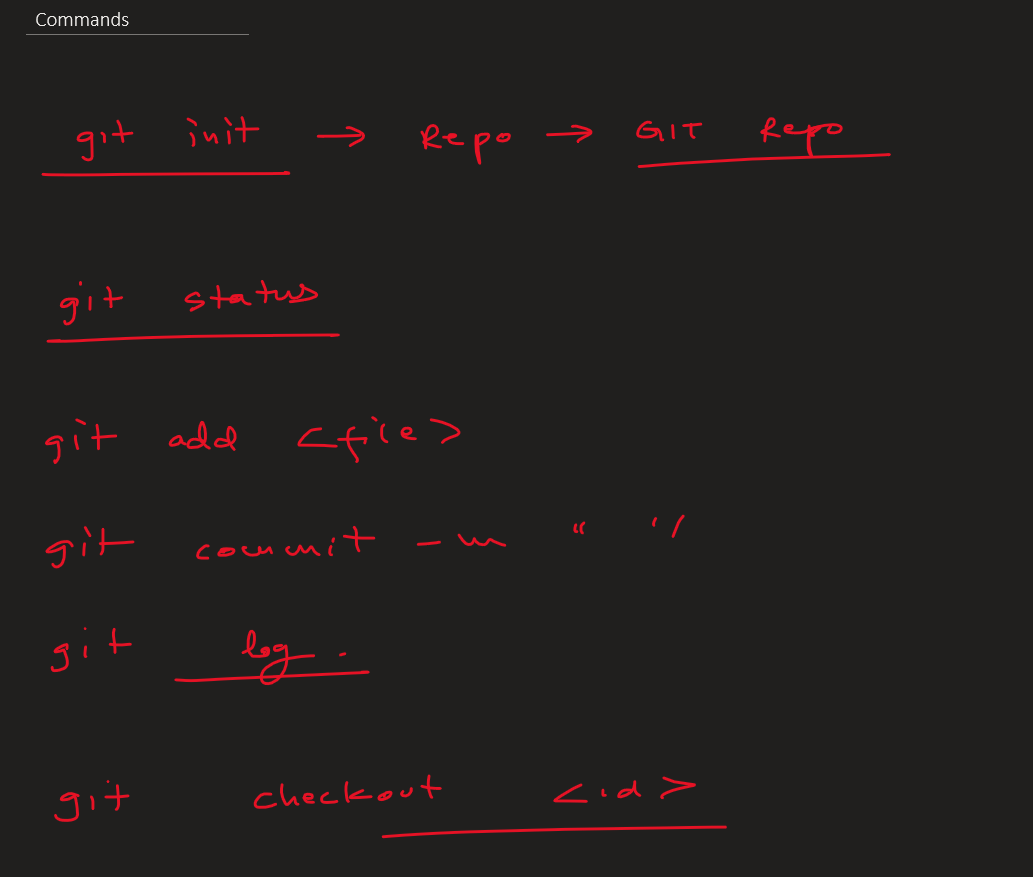 Commands
git init → Repo → GIT Repo
git status
git add <file>
git commit -m " "
git log .
git checkout <id>